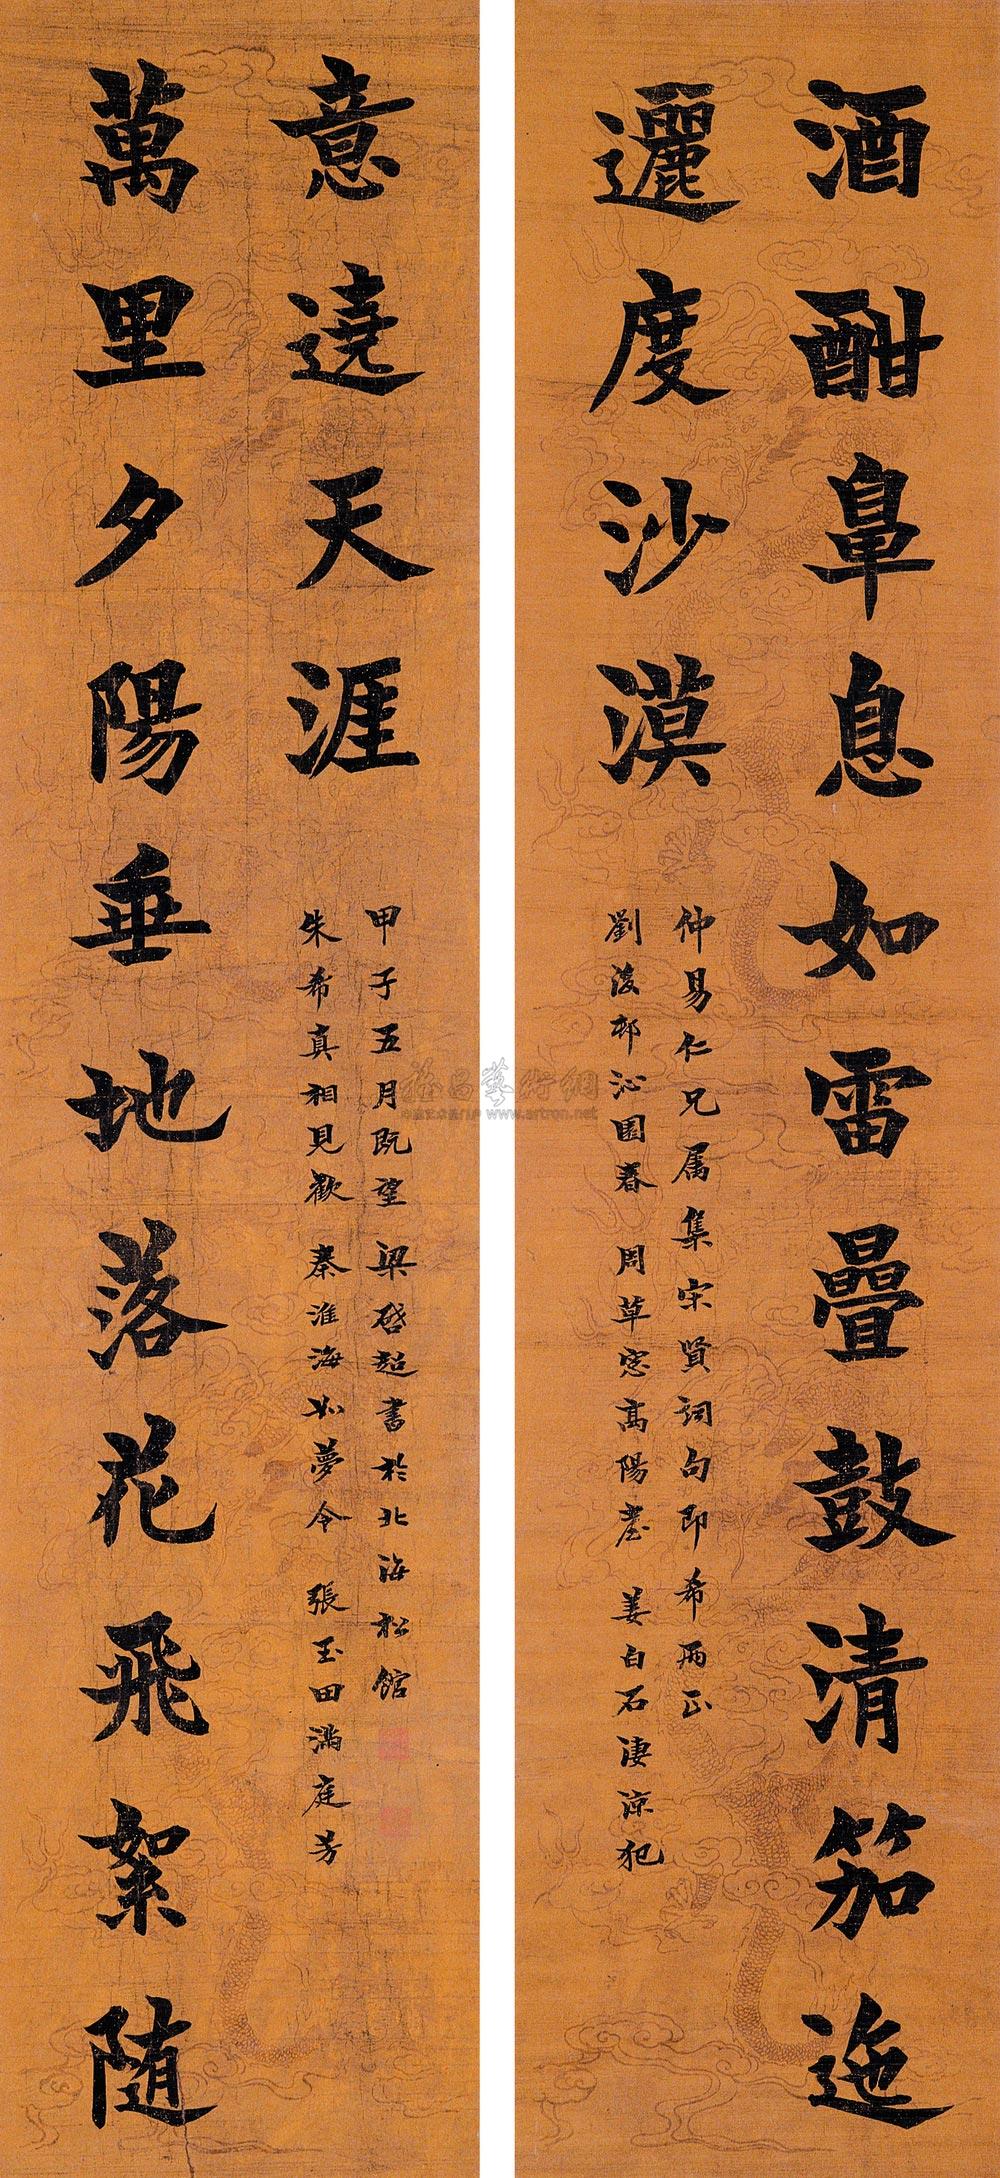 酒酣鼻息如雷疊鼓清笳迤
邐度沙漠
仲易仁兄属集宋賢詞句即希两正
劉後邨沁園春 周草窓高陽臺 姜白石淒涼犯
萬里夕陽垂地落花飛絮随
意遶天涯
甲子五月既望梁啓超書於北海松館
朱希真相見歡 秦淮海如夢令 張玉田滿庭芳
雅昌藝術網
www.artron.net